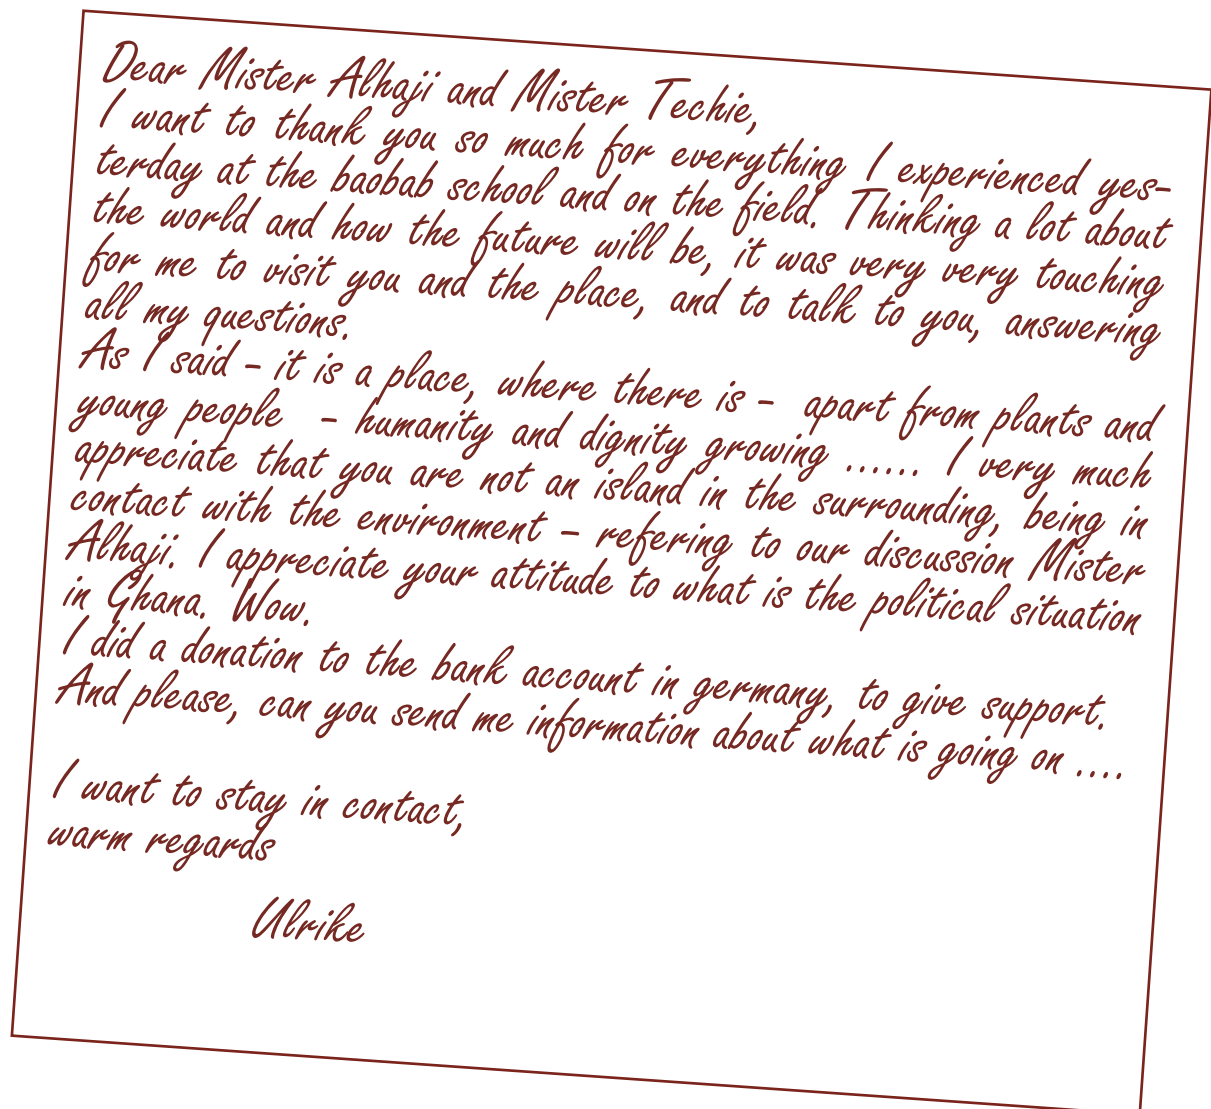 Dear Mister Alhaji and Mister Techie,
I want to thank you so much for everything I experienced yes-
terday at the baobab school and on the field. Thinking a lot about
the world and how the future will be, it was very very touching
for me to visit you and the place, and to talk to you, answering
all my questions.
As I said - it is a place, where there is - apart from plants and
young people - humanity and dignity growing ...... I very much
appreciate that you are not an island in the surrounding, being in
contact with the environment - refering to our discussion Mister
Alhaji. I appreciate your attitude to what is the political situation
in Ghana. Wow.
I did a donation to the bank account in germany, to give support.
And please, can you send me information about what is going on ....
I want to stay in contact,
warm regards
Ulrike